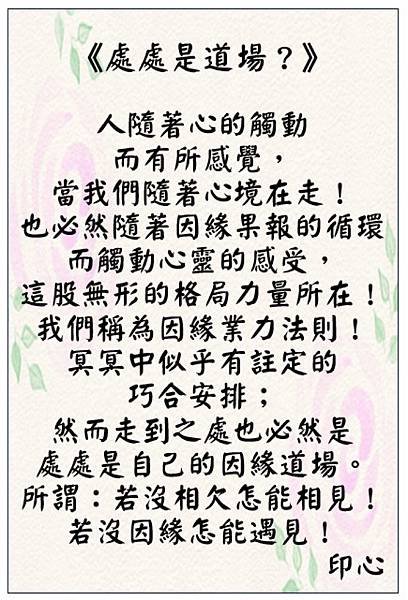 《處處是道場？》
人隨著心的觸動
而有所感覺，
當我們隨著心境在走！
也必然隨著因緣果報的循環
而觸動心靈的感受，
這股無形的格局力量所在！
我們稱為因緣業力法則！
冥冥中似乎有註定的
巧合安排；
然而走到之處也必然是
處處是自己的因緣道場。
所謂：若沒相欠怎能相見！
若沒因緣怎能遇見！
印心